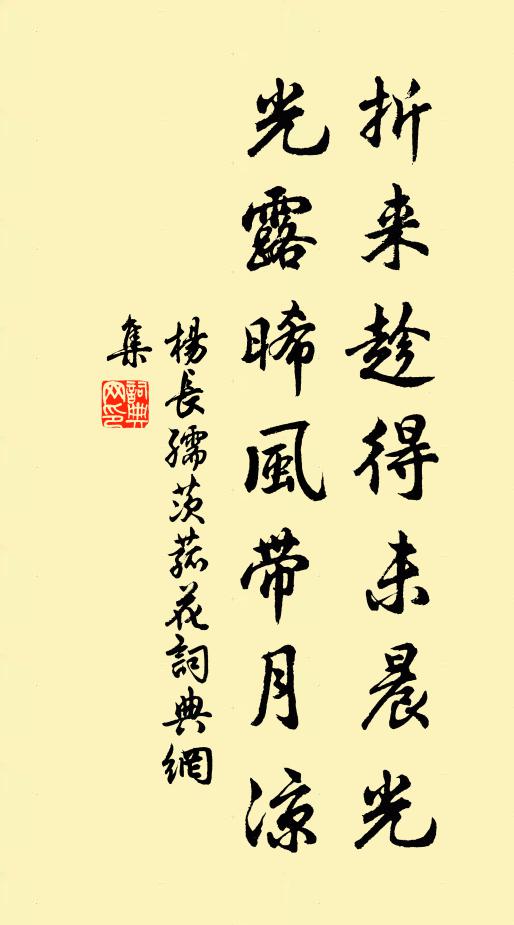 折来趁得未晨光
光露晞風帶月涼
楊長孺茨菰花詞典網
集
詞典
网印